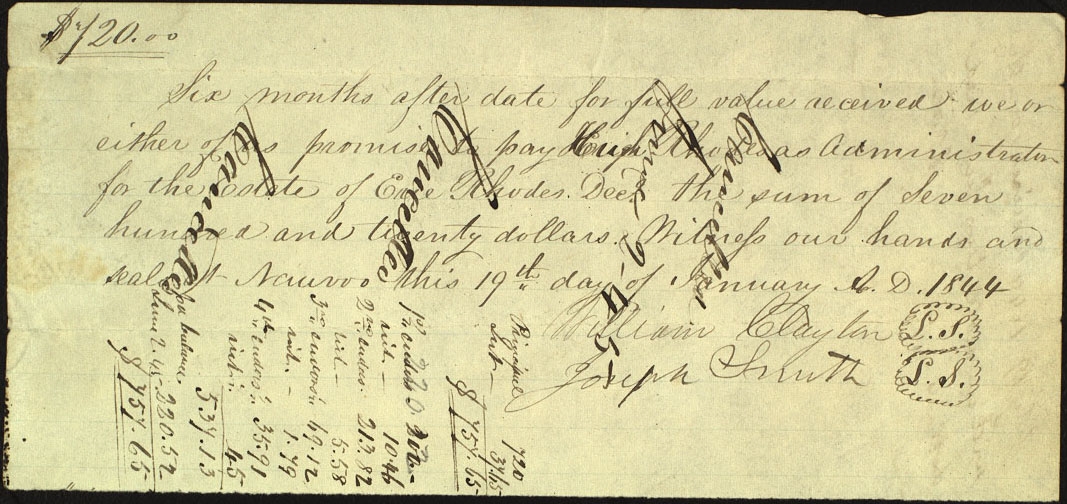 $720.00
Six months after date for full value received we or
either of us promise to pay Hugh Rhodes as Administrator
for the Estate of Rhodes. Decd. the sum of Seven
hundred and twenty dollars. Witness our hands and
seals at Nauvoo this 19th day of January A. D. 1844
William Clayton L. S.
Joseph Smith L. S.
Cancelled
Cancelled
Cancelled
June 9-45
Principal 720
Int- 37.65
$757.65
1st endors 200-
int- 10.46
2nd endors. 213.82
int- 5.58
3rd endors 49.12
int.- 1.79
4th endors. 35.91
int. 45
537.13
pr balance
June 2 45- 220.52
$757.65